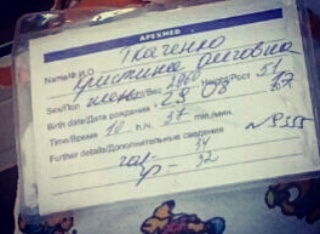 APEXMED
Ткаченко
Name/Ф.И.О
Кристина Олеговна
Sex/Пол жен Вес 2960 Height/Рост 51
Birth date/Дата рождения 29 08 17
Time/Время 10 h./ч. 37 min./мин.
Further details/Дополнительные сведения
34
32